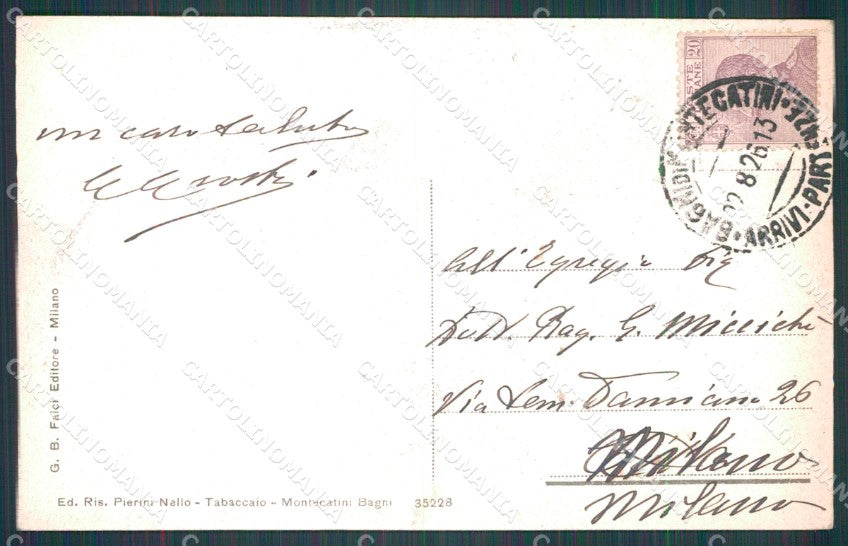 POSTE
ITALIANE
20
BAGNI DI MONTECATINI
ARRIVI · PARTENZE
8 26 13
un caro saluto
All' Egregio Sig
Dott. Rag. G. Miccichè
Via Sem. Damiano 26
Milano
Milano
G. B. Falci Editore - Milano
Ed. Ris. Pierini Nello - Tabaccaio - Montecatini Bagni 35228
CARTOLINOMANIA